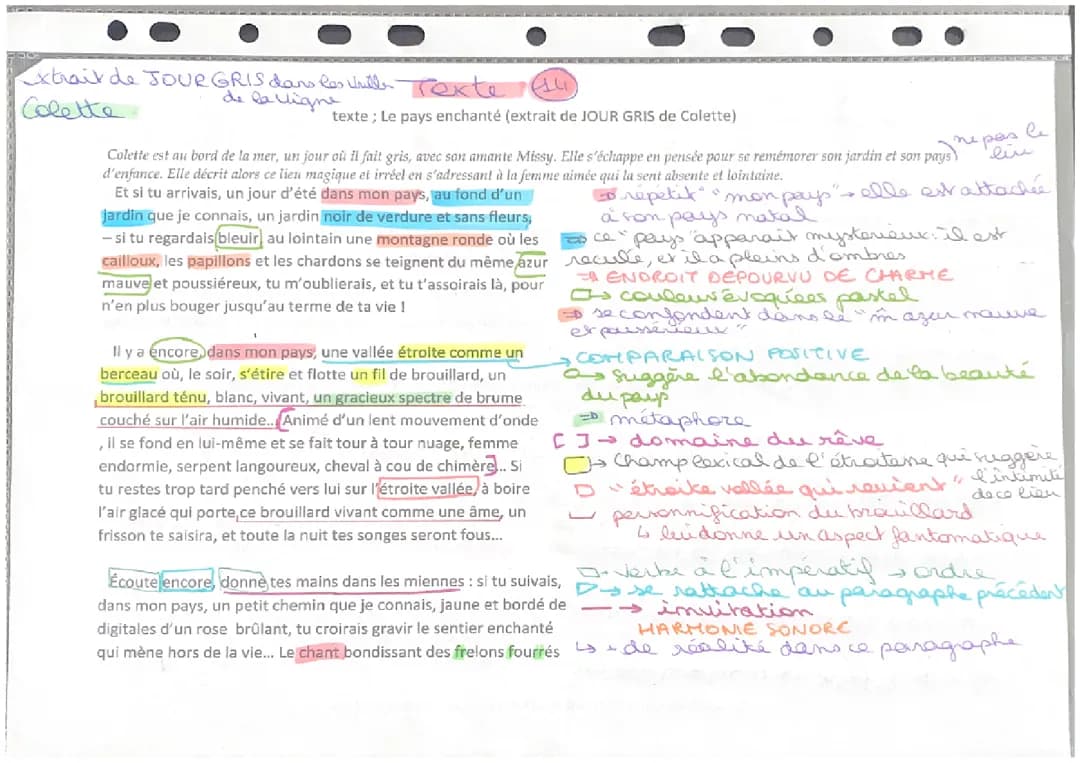 extrait de JOUR GRIS dans les Vrilles
de la Vigne
Texte 14
Colette
texte ; Le pays enchanté (extrait de JOUR GRIS de Colette)
ne pas le
lire
Colette est au bord de la mer, un jour où il fait gris, avec son amante Missy. Elle s'échappe en pensée pour se remémorer son jardin et son pays
d'enfance. Elle décrit alors ce lieu magique et irréel en s'adressant à la femme aimée qui la sent absente et lointaine.
Et si tu arrivais, un jour d'été dans mon pays, au fond d'un
jardin que je connais, un jardin noir de verdure et sans fleurs,
– si tu regardais bleuir, au lointain une montagne ronde où les
cailloux, les papillons et les chardons se teignent du même azur
mauve et poussiéreux, tu m'oublierais, et tu t'assoirais là, pour
n'en plus bouger jusqu'au terme de ta vie !
⇒ répétit° "mon pays" → elle est attachée
à son pays natal
⇒ ce "pays" apparait mysterieux : il est
reculé, et il a pleins d'ombres
⇒ ENDROIT DEPOURVU DE CHARME
→ couleurs évoquées pastel
⇒ se confondent dans le "m̂ azur mauve
et poussiéreux"
Il y a encore, dans mon pays, une vallée étroite comme un
berceau où, le soir, s'étire et flotte un fil de brouillard, un
brouillard ténu, blanc, vivant, un gracieux spectre de brume
couché sur l'air humide... [Animé d'un lent mouvement d'onde
, il se fond en lui-même et se fait tour à tour nuage, femme
endormie, serpent langoureux, cheval à cou de chimère]... Si
tu restes trop tard penché vers lui sur l'étroite vallée, à boire
l'air glacé qui porte ce brouillard vivant comme une âme, un
frisson te saisira, et toute la nuit tes songes seront fous...
→ COMPARAISON POSITIVE
→ suggère l'abondance de la beauté
du pays
⇒ métaphore
[ ] → domaine du rêve
→ Champ lexical de l'étroitesse qui suggère
l'intimité
de ce lieu
"étroite vallée qui revient"
personnification du brouillard
↳ lui donne un aspect fantomatique
Écoute encore, donne tes mains dans les miennes : si tu suivais,
dans mon pays, un petit chemin que je connais, jaune et bordé de
digitales d'un rose brûlant, tu croirais gravir le sentier enchanté
qui mène hors de la vie... Le chant bondissant des frelons fourrés
→ Verbe à l'impératif → ordre
→ se rattache au paragraphe précédent
→ invitation
HARMONIE SONORE
↳ + de réalité dans ce paragraphe